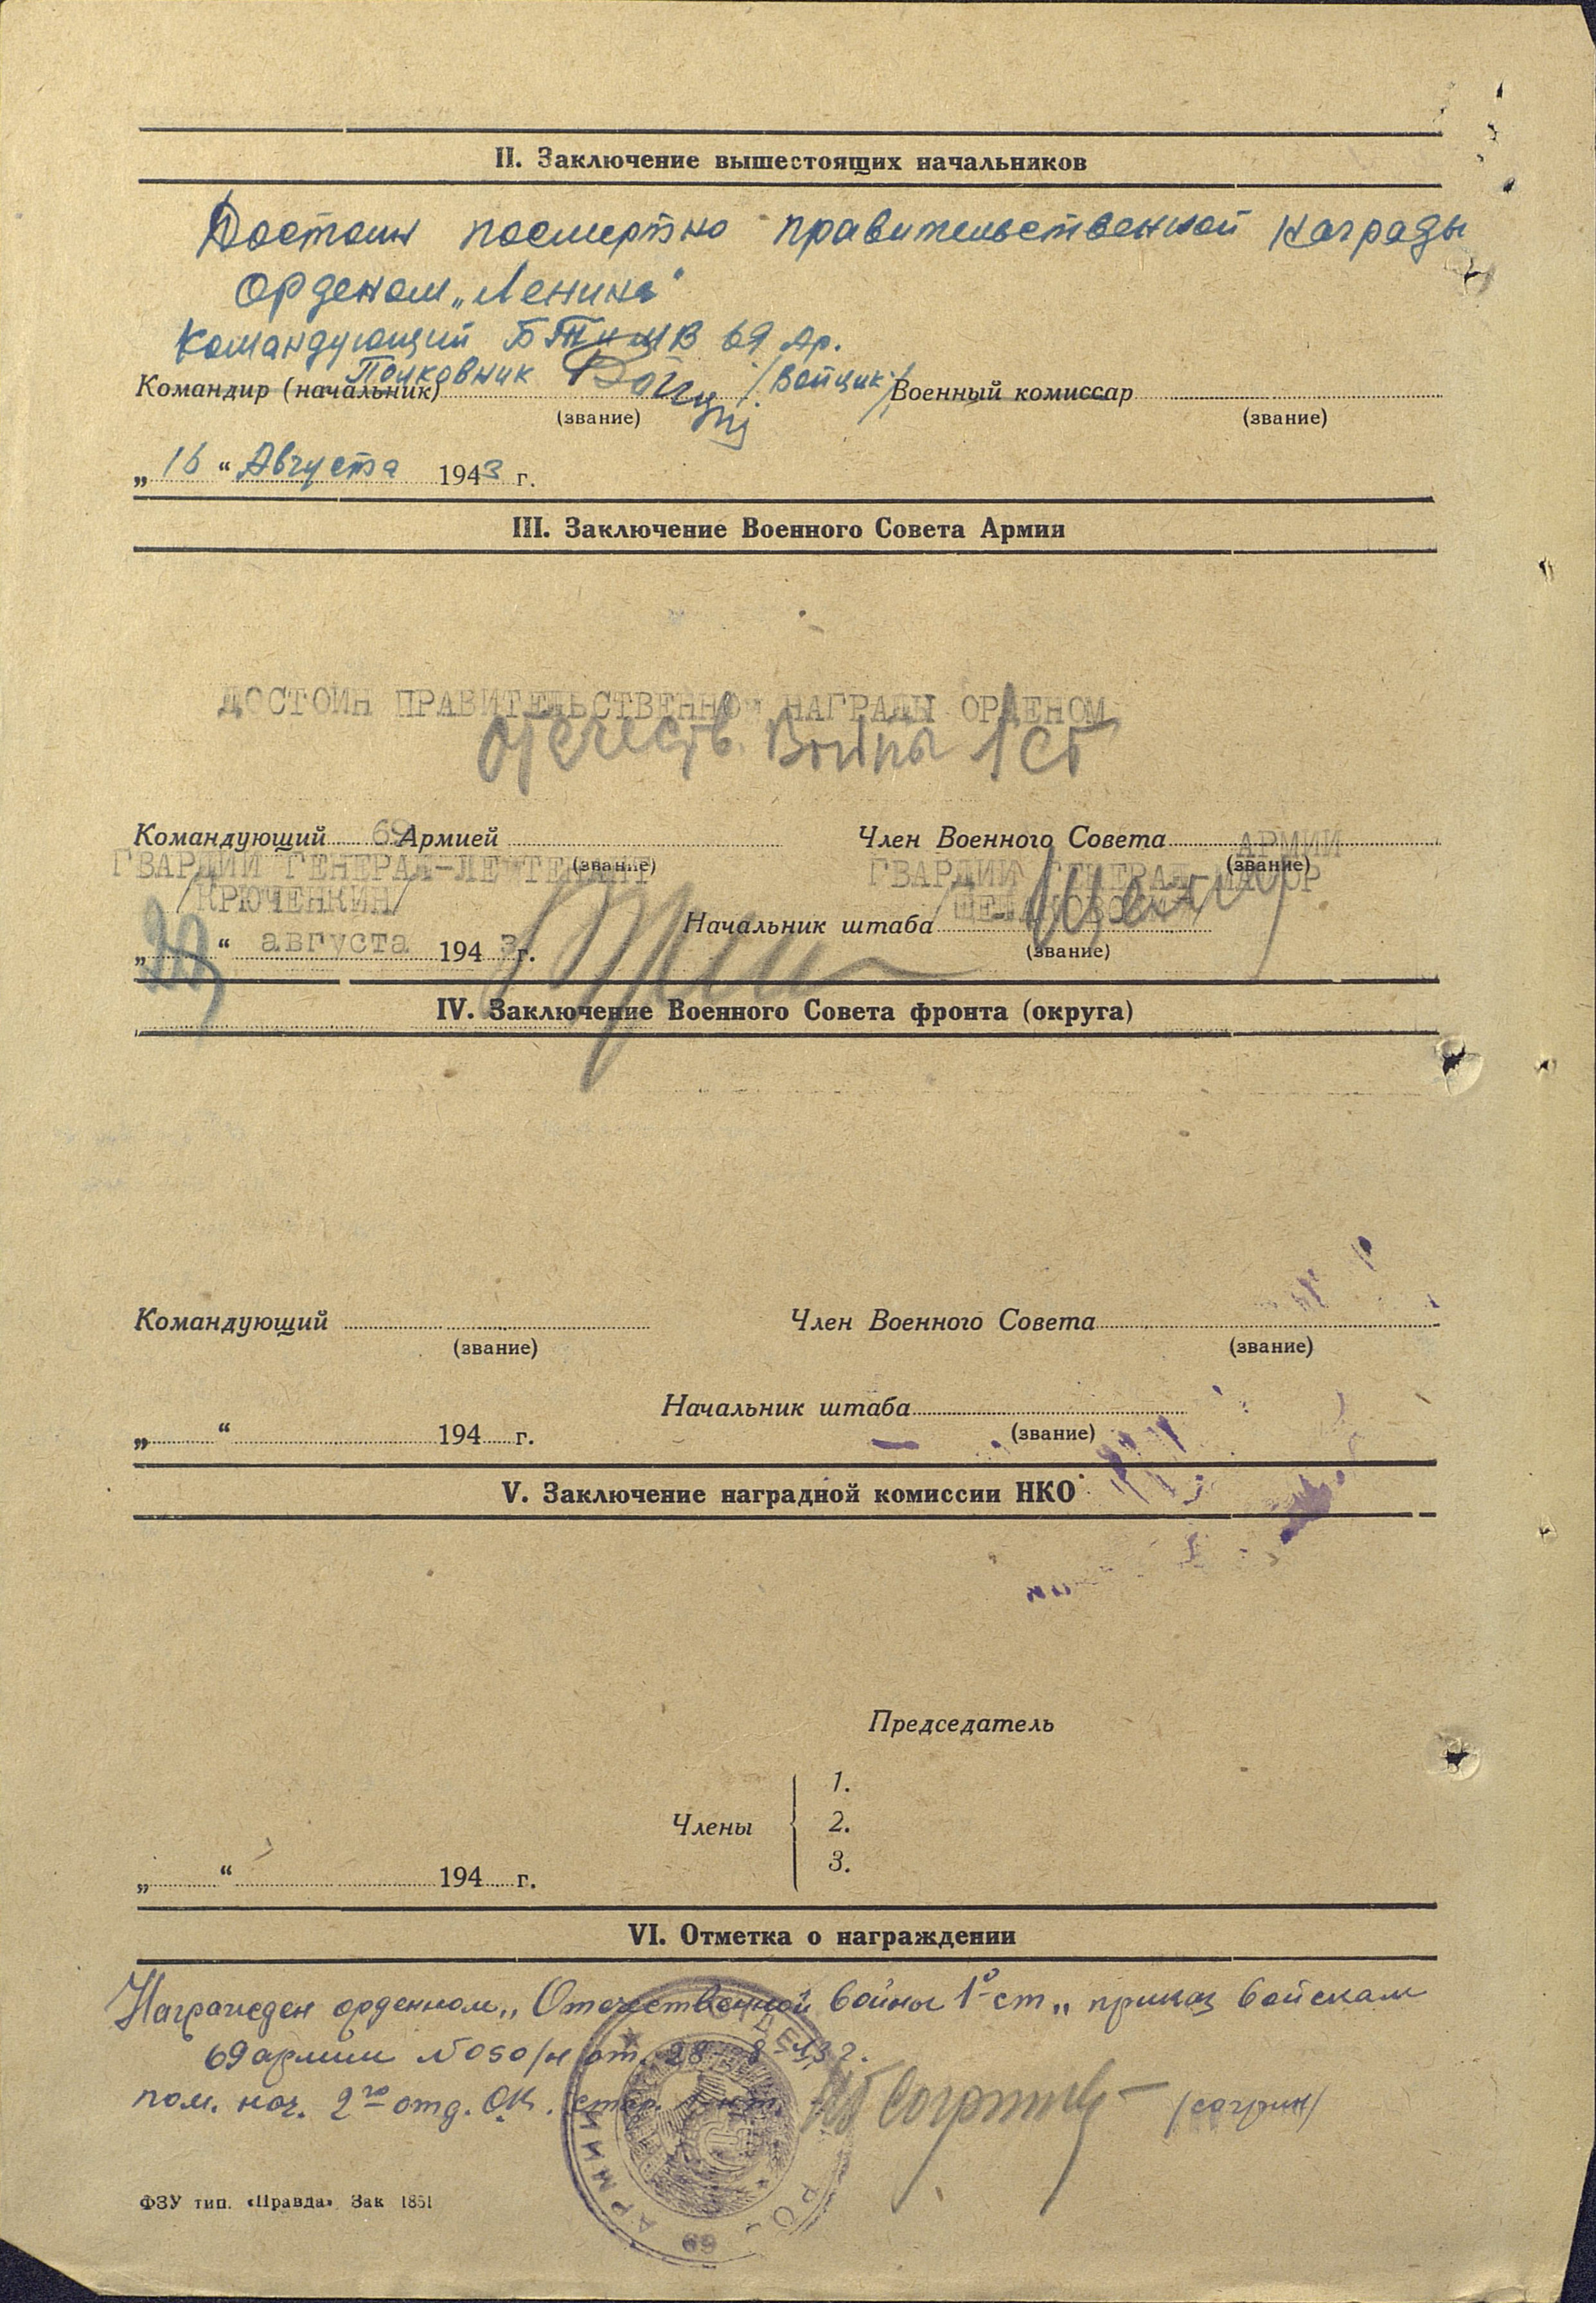 II. Заключение вышестоящих начальников
Достоин посмертно правительственной награды
Орденом „Ленина"
Командующий БТ и МВ 69 Ар.
Полковник /Войцик/
Командир (начальник) Военный комиссар
(звание) (звание)
„16“ Августа 1943 г.
III. Заключение Военного Совета Армии
ДОСТОИН ПРАВИТЕЛЬСТВЕННОЙ НАГРАДЫ ОРДЕНОМ
Отечеств. Войны 1 ст
Командующий 69 Армией Член Военного Совета АРМИИ
(звание) (звание)
ГВАРДИИ ГЕНЕРАЛ-ЛЕЙТЕНАНТ ГВАРДИИ ГЕНЕРАЛ-МАЙОР
/КРЮЧЕНКИН/
Начальник штаба
(звание)
„ “ августа 1943 г.
IV. Заключение Военного Совета фронта (округа)
Командующий Член Военного Совета
(звание) (звание)
Начальник штаба
(звание)
„ “ 194 г.
V. Заключение наградной комиссии НКО
Председатель
1.
Члены 2.
3.
„ “ 194 г.
VI. Отметка о награждении
Награжден орденном „Отечественной войны 1й ст„ приказ войскам
69 армии №050/н от 28-8-43г.
пом. нач. 2го отд. О.К. /согрин/
АРМИИ
69
ФЗУ тип. «Правда» Зак 1851